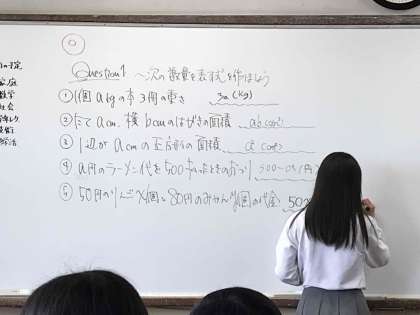 家庭
数学
社会
Question1 〜次の数量を表す式を作りましょう
① 1個 a kgの本 3冊の重さ 3a (kg)
② たて a cm、横 b cmのはがきの面積 ab (cm²)
③ 1辺が a cmの正方形の面積 a² (cm²)
④ a円のラーメン代を500払ったときのおつり 500-a (円)
⑤ 50円のりんごx個と80円のみかんy個の代金 50x